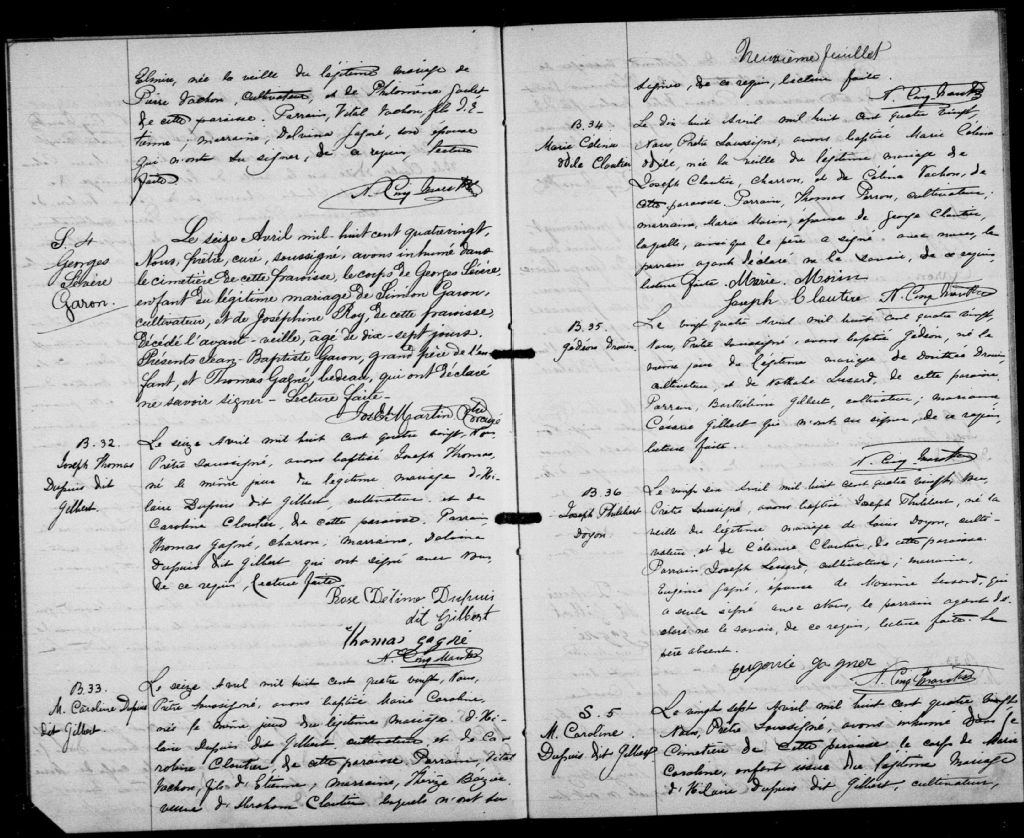 Elmire, née la veille du légitime mariage de
Pierre Vachon, cultivateur, et de Philomène
de cette paroisse. Parrain, Vital Vachon fils d'E-
tienne, marraine, Delvina Gagné, son épouse
qui n'ont su signer, de ce requis, lecture
faite.
N. Cinq-Mars Ptre
S. 4
Georges
Sévère
Garon.
Le seize Avril mil-huit cent quatrevingt,
Nous, prêtre, curé, soussigné, avons inhumé dans
le cimetière de cette paroisse, le corps de Georges Sévère,
enfant du légitime mariage de Simon Garon,
cultivateur, et de Joséphine Roy, de cette paroisse
décédé l'avant-veille, âgé de dix-sept jours.
Présents Jean-Baptiste Garon, grand père de l'en-
fant, et Thomas Gagné, bedeau, qui ont déclaré
ne savoir signer - Lecture faite -
Jos. Et. Martin Ptre
B. 32
Joseph Thomas
Dupuis dit
Gilbert.
Le seize Avril mil huit cent quatre vingt, Nous,
Prêtre soussigné, avons baptisé Joseph Thomas,
né le même jour du légitime mariage d'Hi-
laire Dupuis dit Gilbert, cultivateur et de
Caroline Cloutier, de cette paroisse. Parrain
Thomas Gagné, charron, marraine, Delima
Dupuis dit Gilbert qui ont signé avec Nous,
de ce requis, Lecture faite.
Rose Délima Dupuis
dit Gilbert
Thomas gagné
N. Cinq-Mars Ptre
B. 33.
M. Caroline Dupuis
dit Gilbert
Le seize Avril mil huit cent quatre vingt, Nous,
Prêtre soussigné, avons baptisé Marie Caroline,
née le même jour du légitime mariage d'Hi-
laire Dupuis dit Gilbert, cultivateur et de Ca-
roline Cloutier, de cette paroisse. Parrain, Vital
Vachon, fils d'Etienne, marraine,
veuve d'Abraham Cloutier lesquels n'ont su
Neuvième feuillet
signer, de ce requis, lecture faite.
N. Cinq-Mars Ptre
B. 34
Marie Colena
Odile Cloutier
Le dix huit Avril mil huit cent quatre vingt,
Nous, Prêtre soussigné, avons baptisé Marie Colena
Odile, née la veille du légitime mariage de
Joseph Cloutier, charron, et de Célina Vachon, de
cette paroisse. Parrain, Thomas Perron, cultivateur;
marraine, Marie Morin, épouse de George Cloutier,
laquelle, ainsi que le père a signé avec nous, le
parrain ayant déclaré ne le savoir, de ce requis
lecture faite. Marie Morin
Joseph Cloutier N. Cinq-Mars Ptre
B. 35.
Gédéon Drouin.
Le vingt quatre Avril mil huit cent quatre vingt,
Nous, Prêtre soussigné, avons baptisé Gédéon, né le
même jour du légitime mariage de Drouin,
cultivateur, et de Nathalie Lessard, de cette paroisse.
Parrain, Barthélémi Gilbert, cultivateur; marraine
Césarie Gilbert qui n'ont su signer, de ce requis,
lecture faite.
N. Cinq-Mars Ptre
B. 36
Joseph Philibert
Doyon.
Le vingt six Avril mil huit cent quatre vingt, Nous
Prêtre soussigné, avons baptisé Joseph Philibert, né la
veille du légitime mariage de Louis Doyon, culti-
vateur, et de Célenie Cloutier, de cette paroisse.
Parrain, Joseph Lessard, cultivateur; marraine,
Eugénie Gagné, épouse de Maxime Lessard, qui
a seule signé avec Nous, le parrain ayant dé-
claré ne le savoir, de ce requis, lecture faite. Le
père absent.
Eugenie gagner
N. Cinq-Mars Ptre
S. 5
M. Caroline
Dupuis dit Gilbert
Le vingt sept Avril mil huit cent quatre vingt
Nous, Prêtre Soussigné, avons inhumé dans le
Cimetière de cette paroisse le corps de Marie
Caroline, enfant issue du légitime mariage
d'Hilaire Dupuis dit Gilbert, cultivateur,